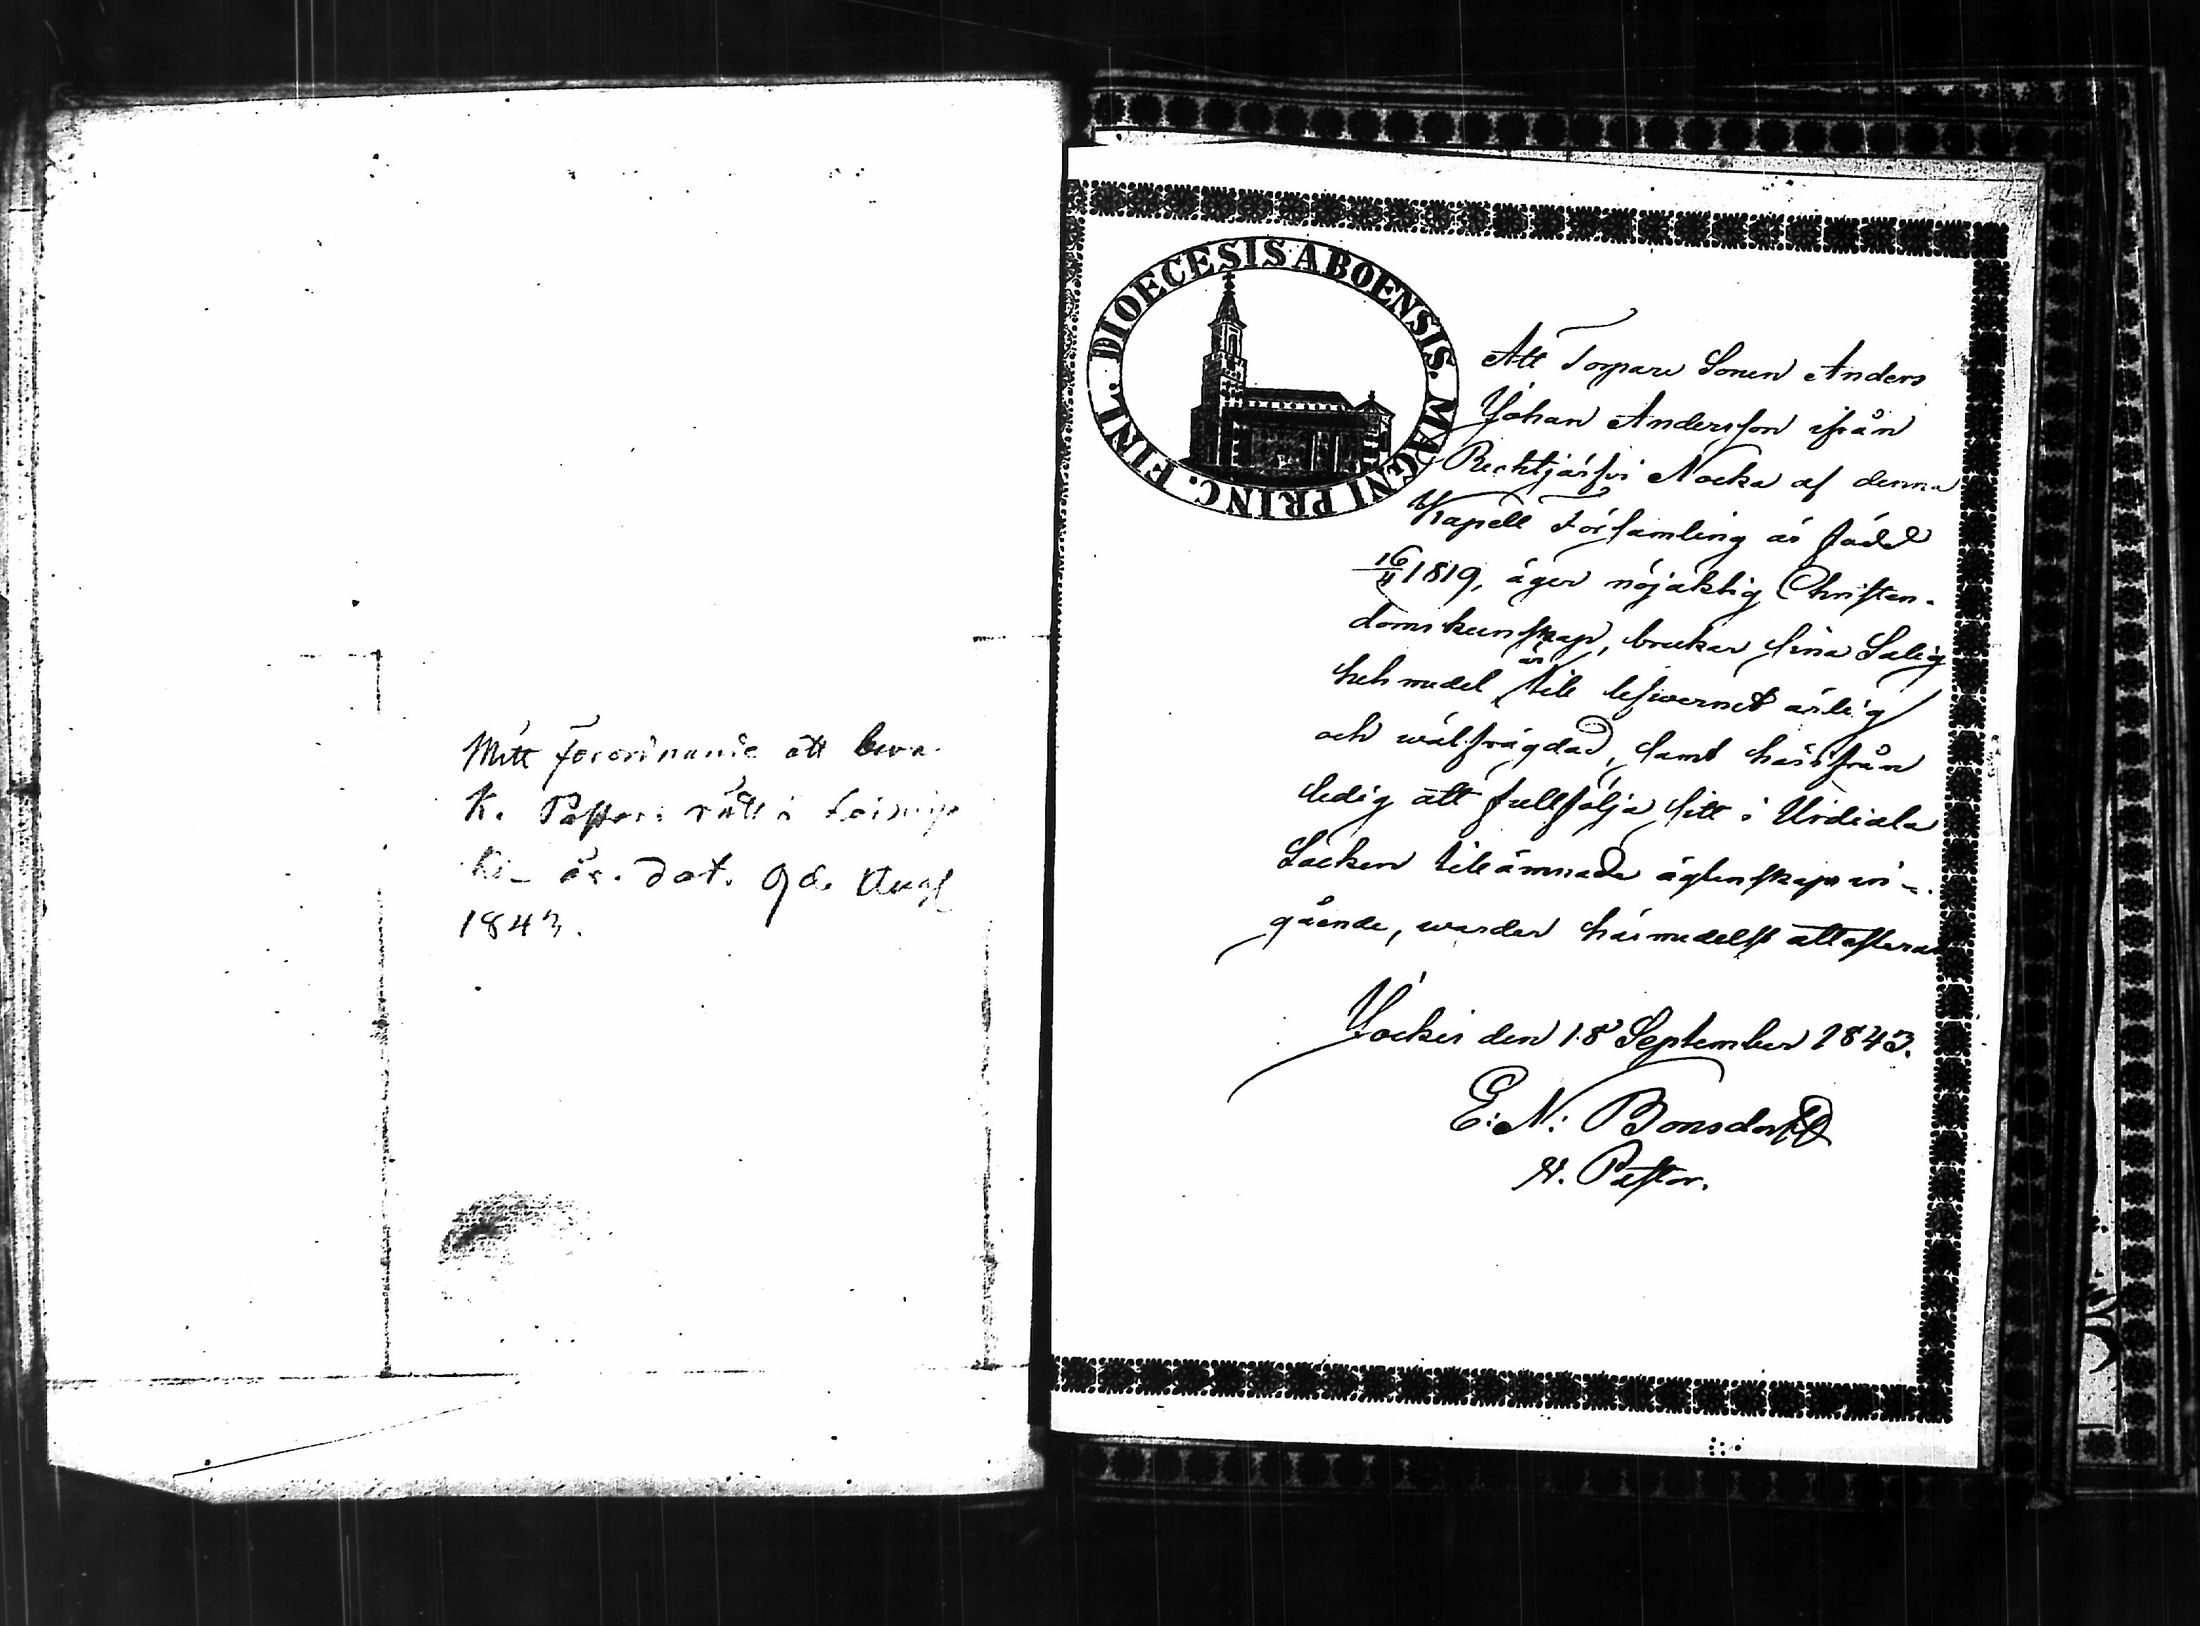 Mitt förordnande att beva-
K. Pastors rätt i Loimijo
ki är. dat. 9 de Augs
1843.
DIOECESIS ABOENSIS. MAGNI PRINC. FINL.
Att Torpare Sonen Anders
Johan Andersson ifrån
Rechtjärfvi Nocka af denna
Kapell Församling är född
16/11 1819, äger nöjaktig Christen-
domskunskap, brukar sina Salig
hets medel, är till lefvernet ärlig
och wälfrägdad, samt härifrån
ledig att fullfölja sitt i Urdiala
Socken tillämnade äglenskaps in-
gående, warder härmedelst attesterat
Jockis den 18 September 1843.
E: N: Bonsdorff
V. Pastor.